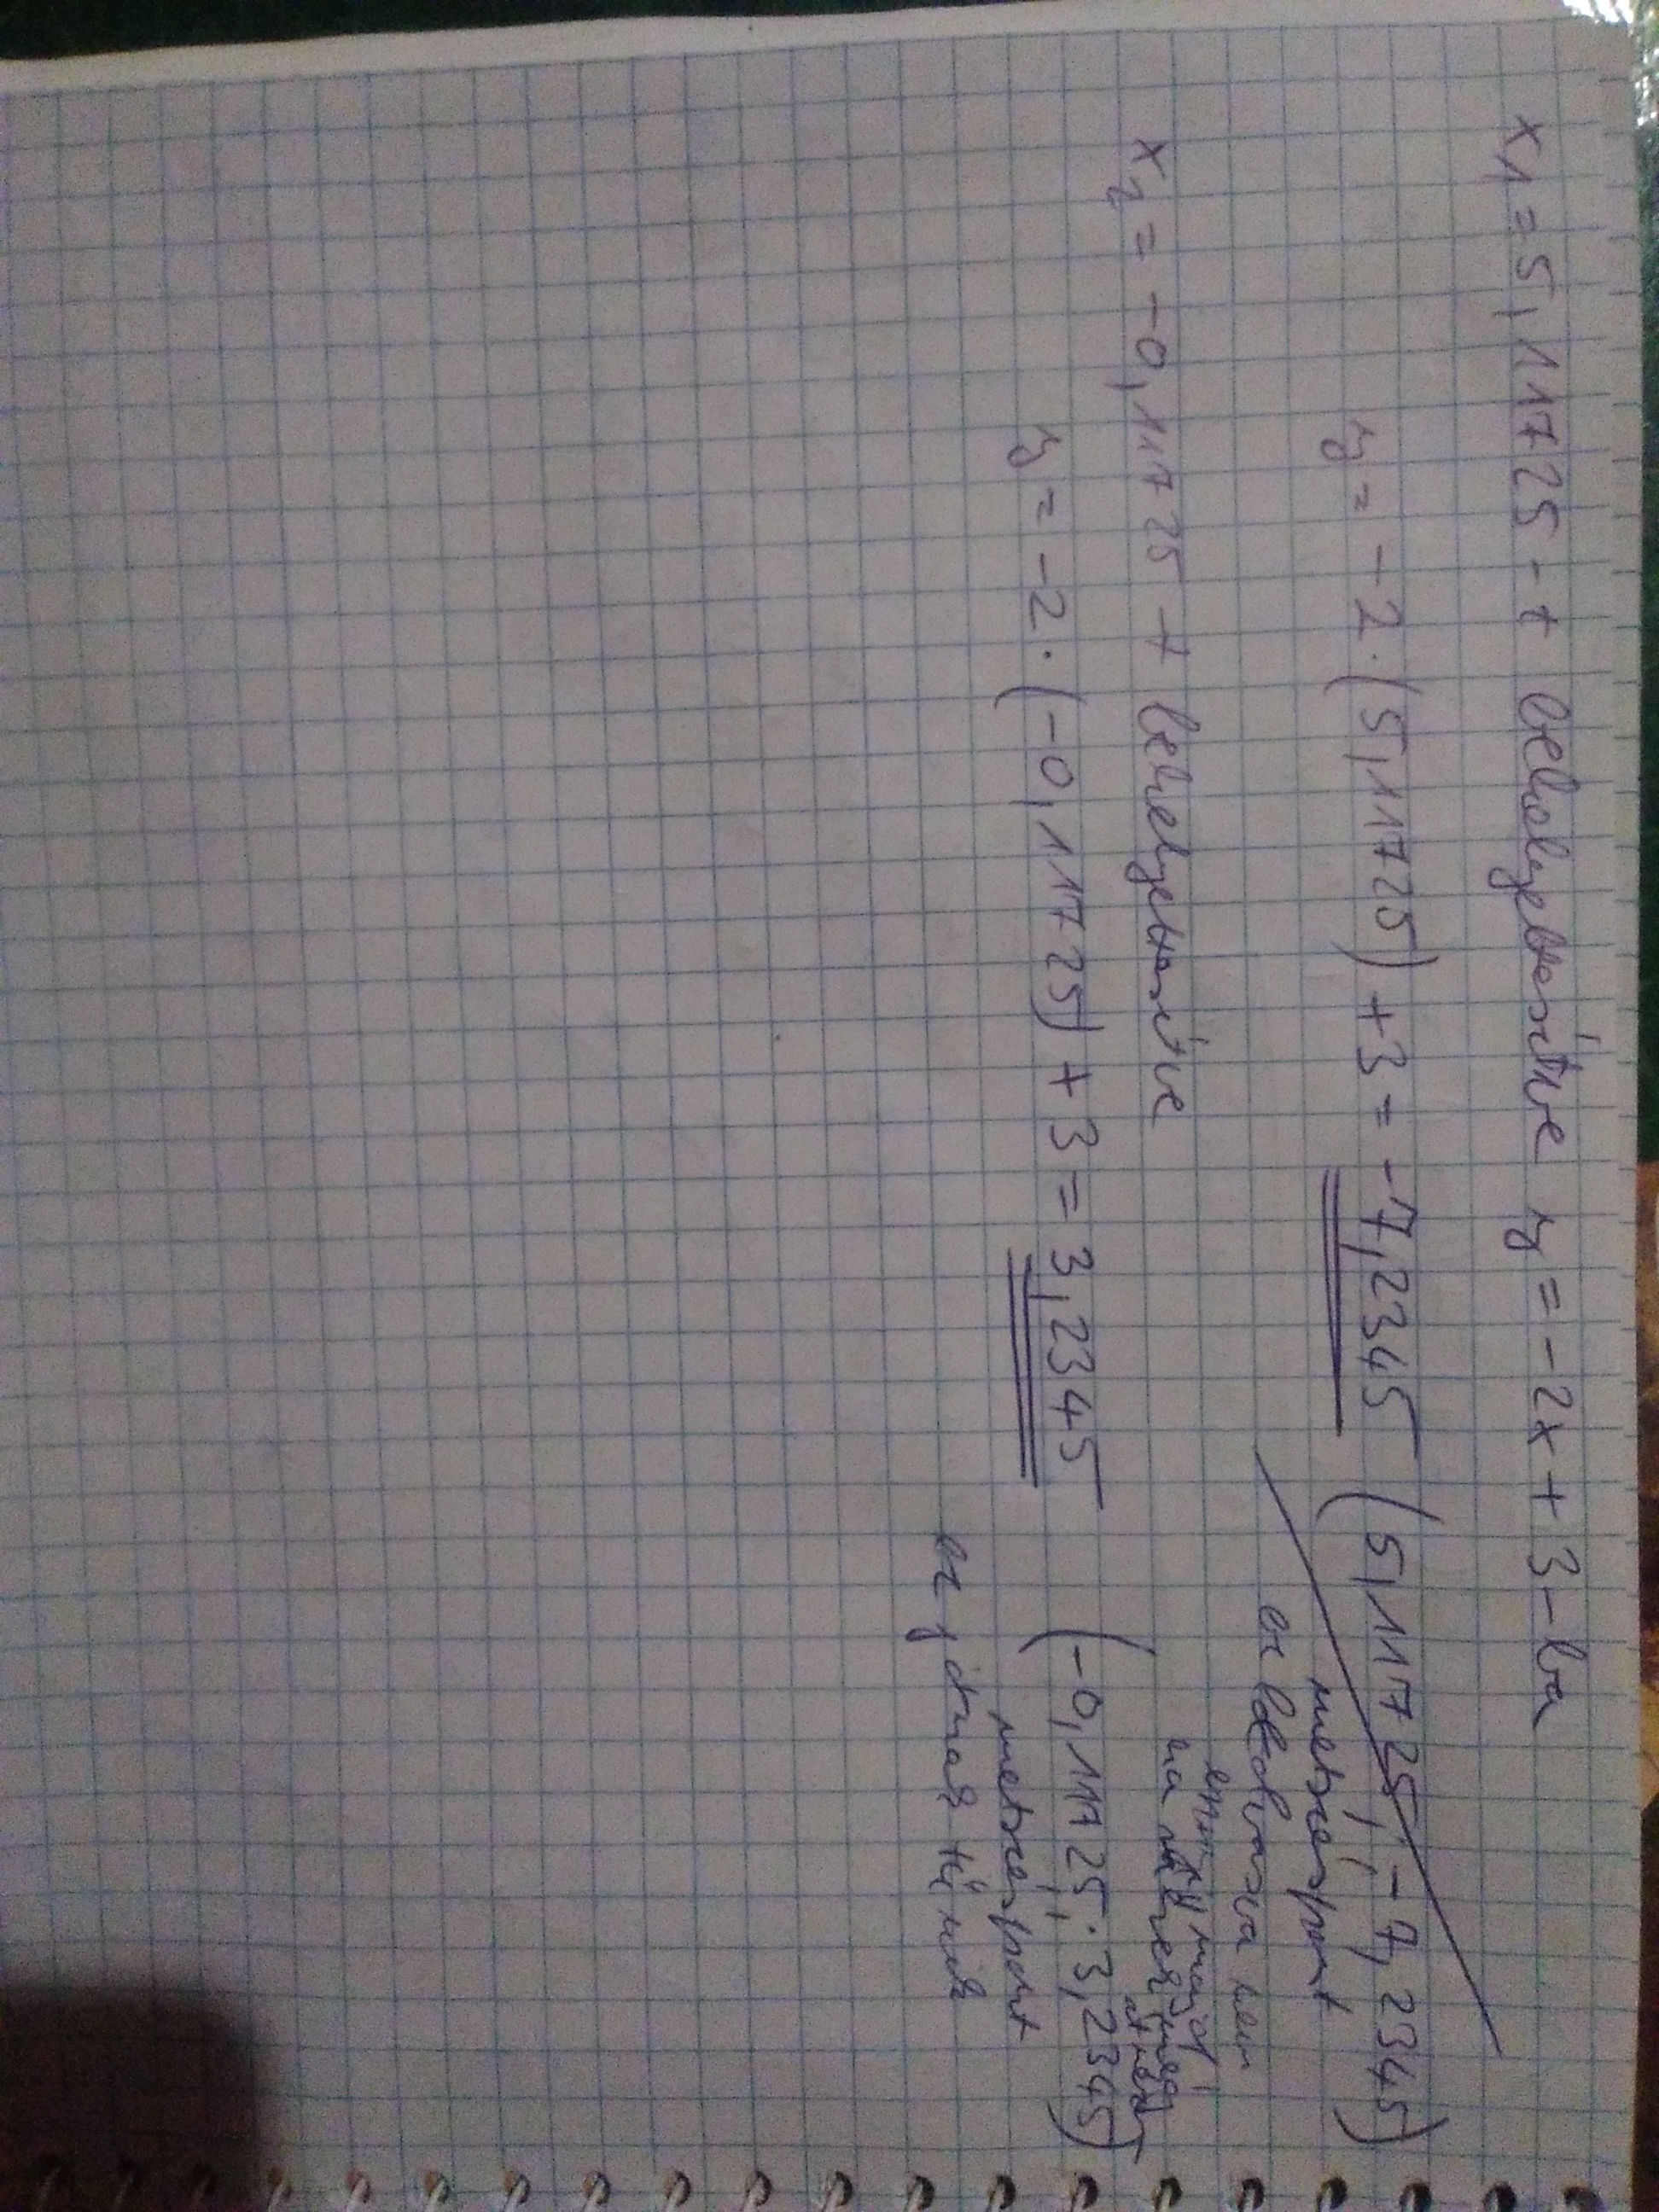 x₁ = 5,11725 -t behelyettesítve y = -2x + 3 - ba
y = -2 · (5,11725) + 3 = -7,2345 (5,11725; -7,2345)
metszéspont
ez
nem
majd
x₂ = -0,11725 -t behelyettesítve
y = -2 · (-0,11725) + 3 = 3,2345 (-0,11725; 3,2345)
metszéspont
ez jónak tűnik